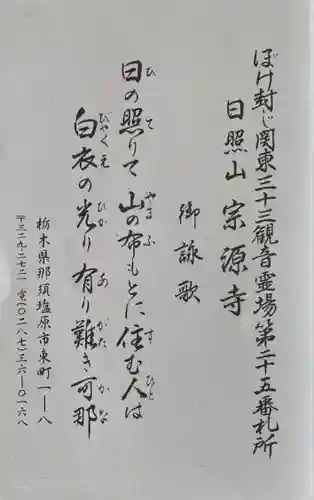 ぼけ封じ関東三十三観音霊場第二十五番札所
日照山 宗源寺
御詠歌
日の照りて 山の布もとに 住む人は
白衣の光り 有り難き 可那
栃木県那須塩原市東町一ー八
〒三二九・二七二一 電(〇二八七)三六ー〇一六八